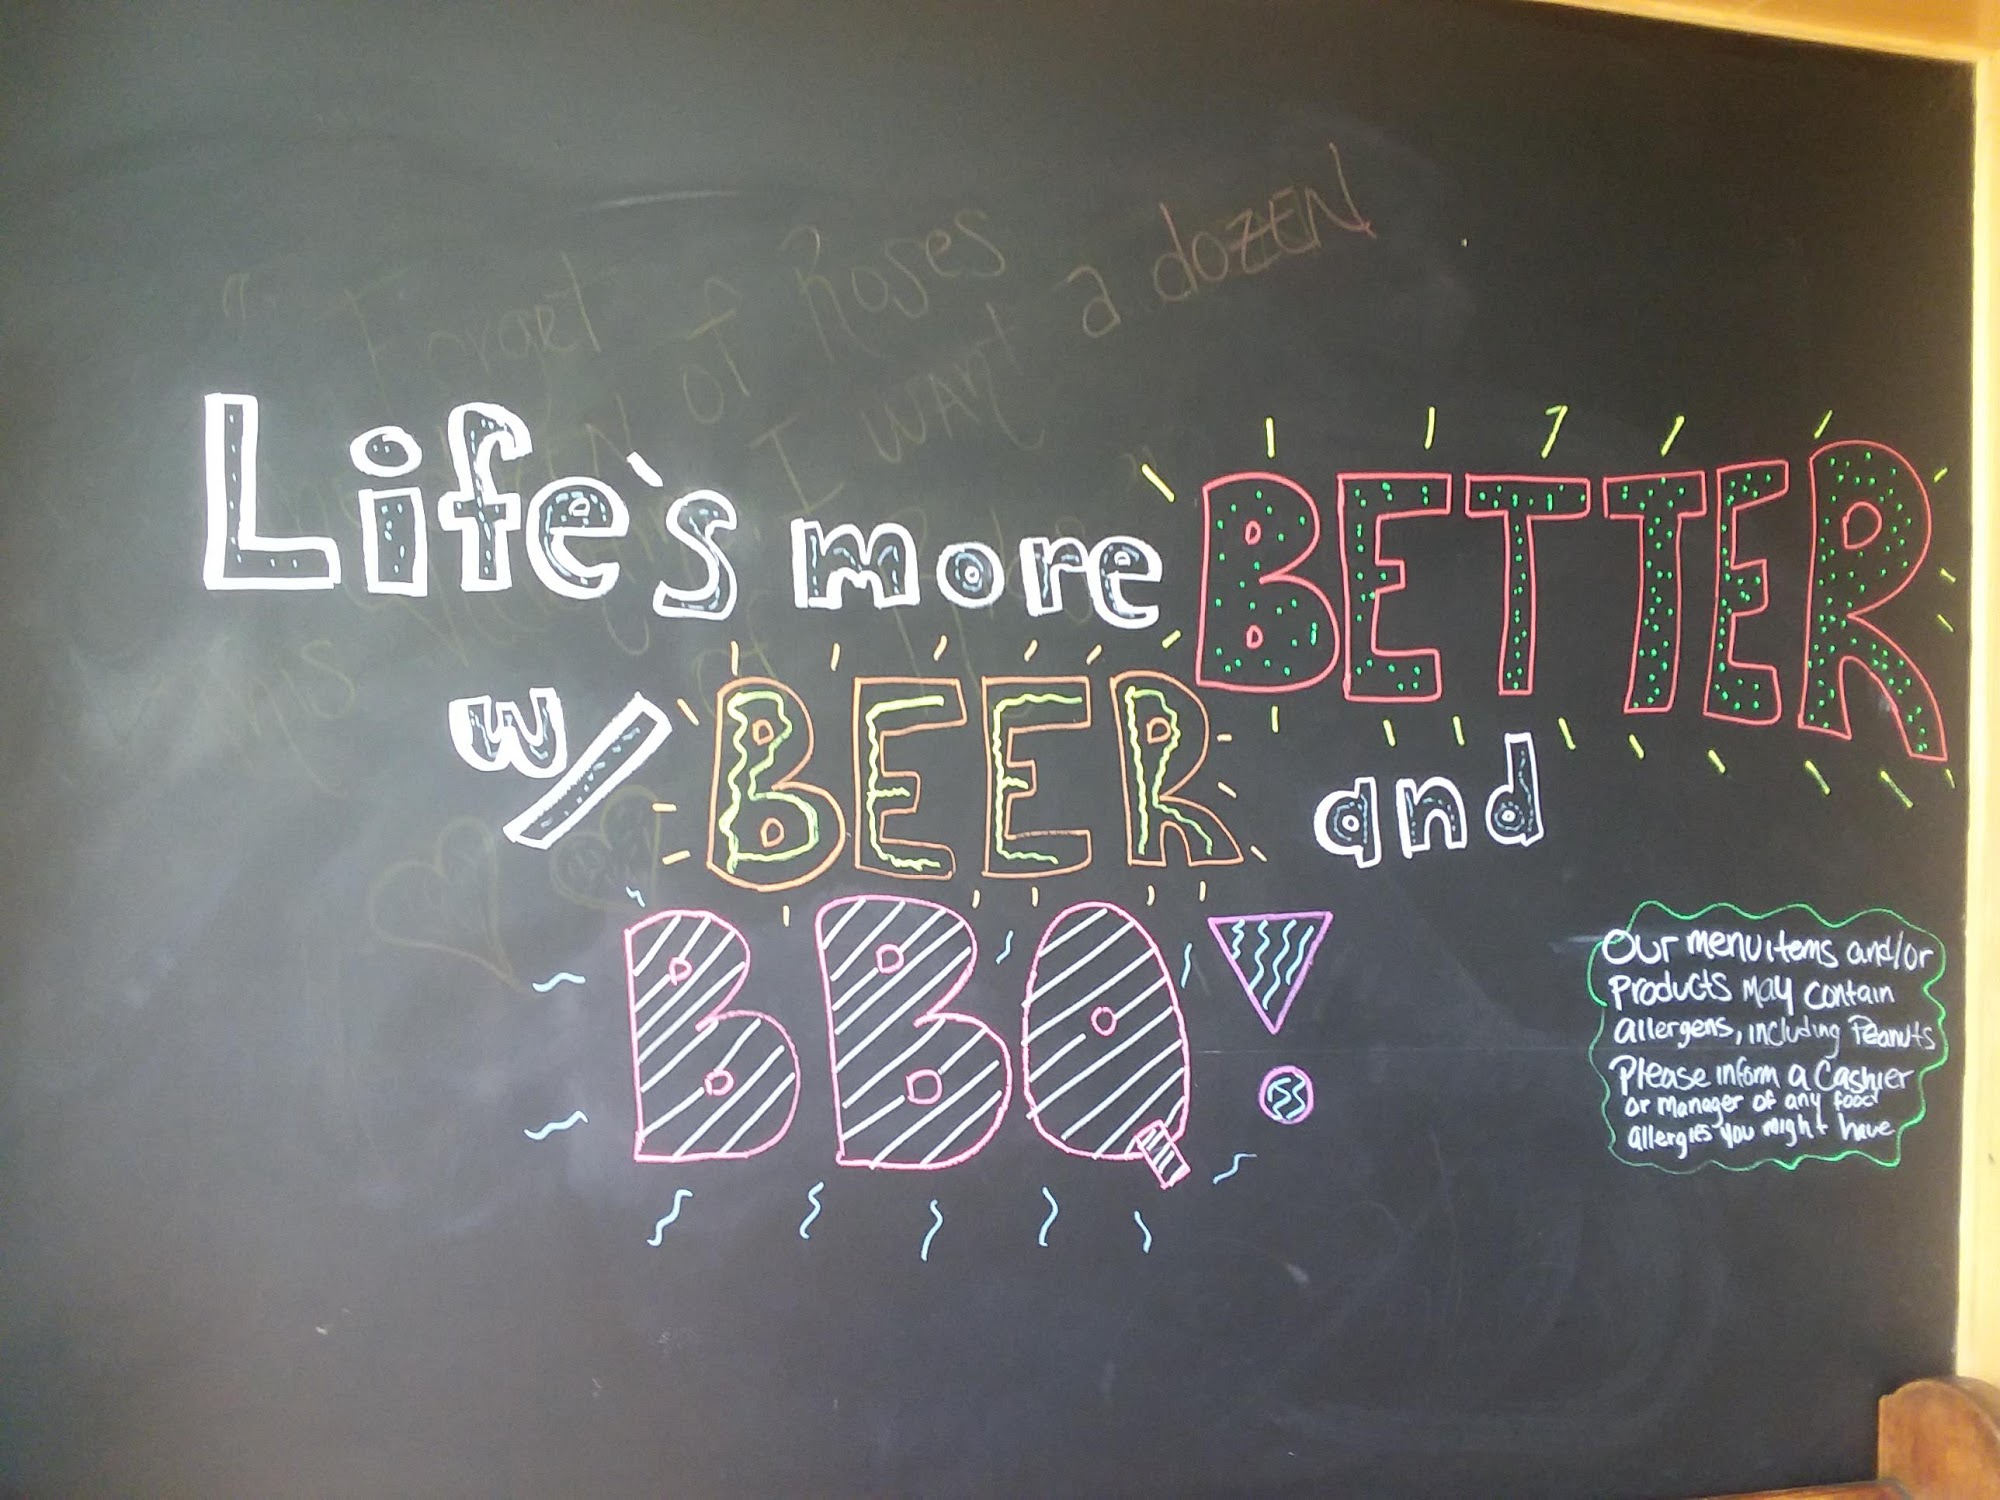 "Forget
of Roses
I want a dozen
this
Life's more BETTER
w/ BEER and
BBQ!
Our menu items and/or
Products May contain
allergens, including Peanuts
Please inform a Cashier
or manager of any food
allergies you might have